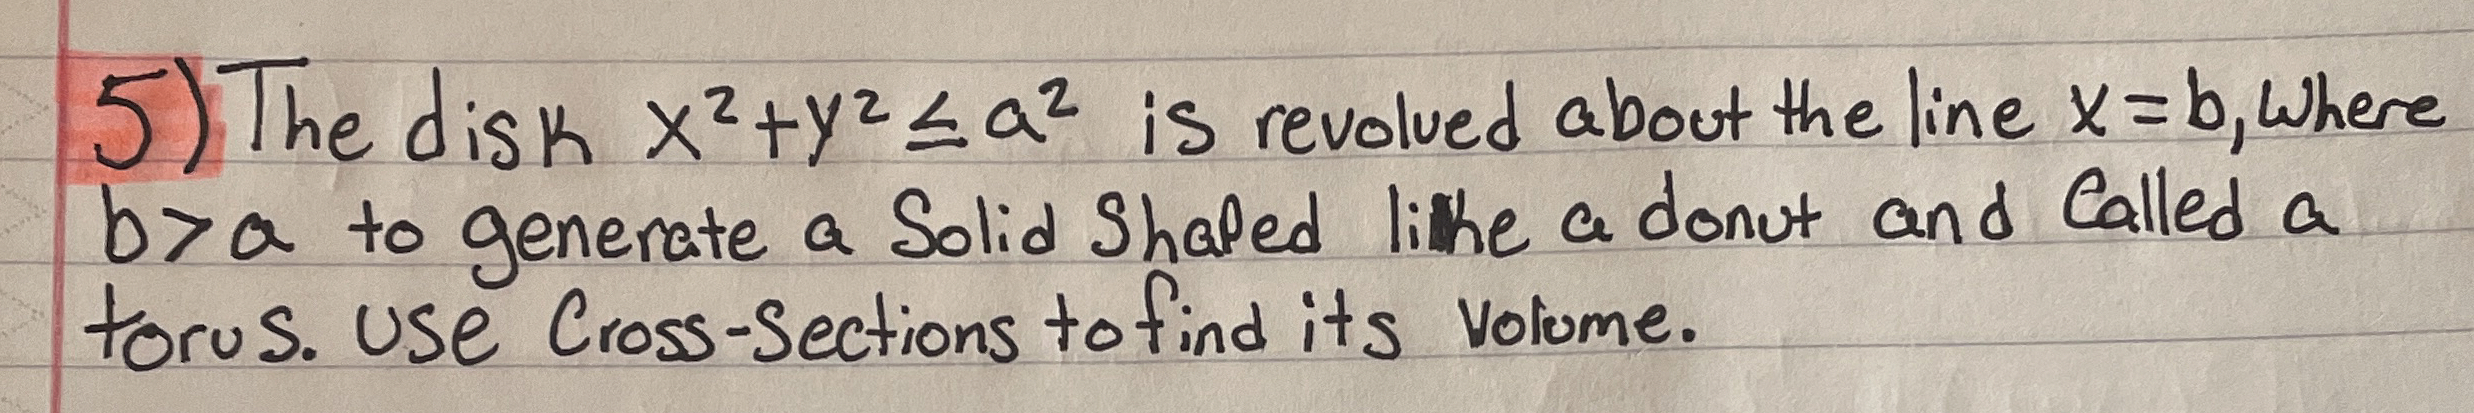 5) The disk x² + y² ≤ a² is revolved about the line x = b, where
b > a to generate a Solid Shaped like a donut and Called a
torus. Use Cross-Sections to find its Volume.